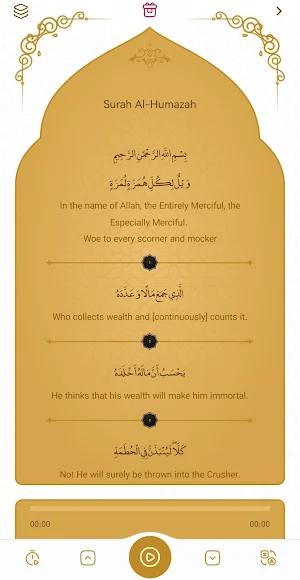 Surah Al-Humazah
بِسْمِ اللَّهِ الرَّحْمَٰنِ الرَّحِيمِ
وَيْلٌ لِّكُلِّ هُمَزَةٍ لُّمَزَةٍ
In the name of Allah, the Entirely Merciful, the
Especially Merciful.
Woe to every scorner and mocker
الَّذِي جَمَعَ مَالًا وَعَدَّدَهُ
Who collects wealth and [continuously] counts it.
يَحْسَبُ أَنَّ مَالَهُ أَخْلَدَهُ
He thinks that his wealth will make him immortal.
كَلَّا لَيُنبَذَنَّ فِي الْحُطَمَةِ
No! He will surely be thrown into the Crusher.
00:00 00:00